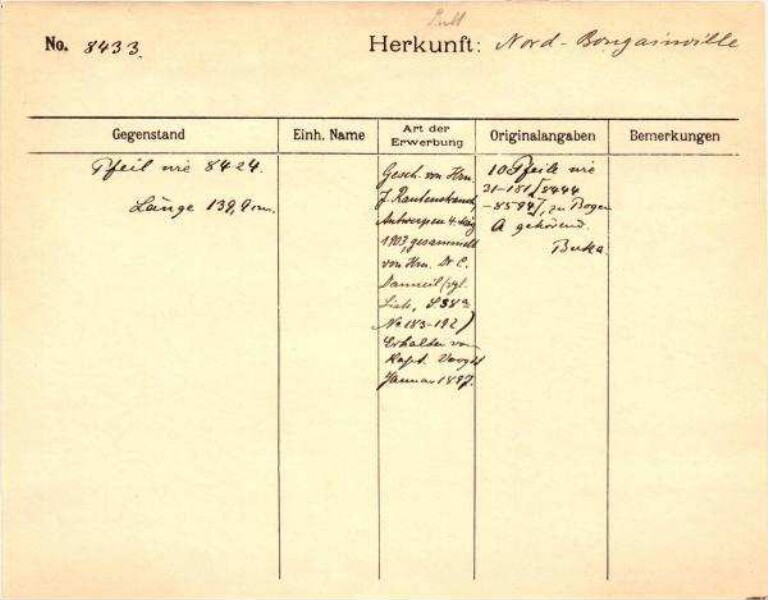 No. 8433.
Herkunft: Nord-Bougainville
Gegenstand
Einh. Name
Art der Erwerbung
Originalangaben
Bemerkungen
Pfeil wie 8424.
Länge 139,9 cm.
Gesch. von Hrn.
J. Rautenstrauch,
Antwerpen 4. März
1903, gesammelt
von Hrn. Dr C.
Danneil (vgl.
Liste, S 38a
No 183-192)
Erhalten von
Kapt. Voogdt
Januar 1897.
10 Pfeile wie
31-181 [8444
-8594], zu Bogen
A gehörend.
Buka.